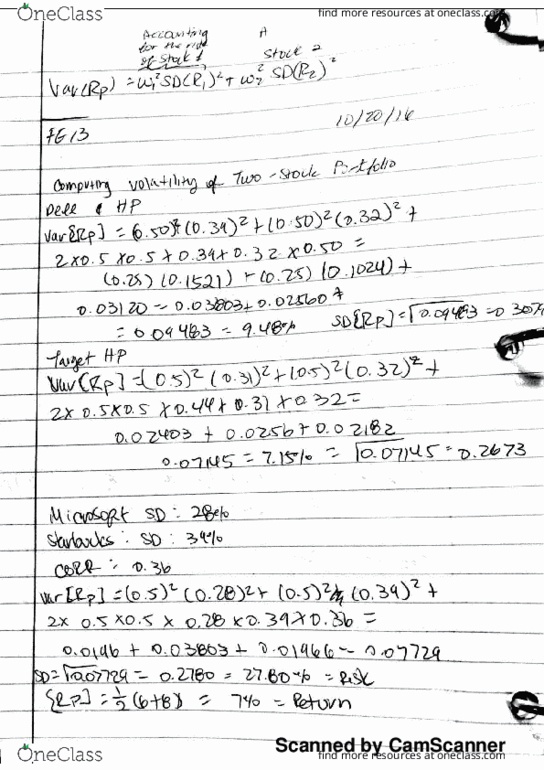 OneClass
find more resources at oneclass.com
Accounting A
for the risk
of Stock 1 Stock 2
Var(Rp) = w₁² SD(R₁)² + w₂² SD(R₂)²
10/20/16
Computing volatility of Two-Stock Portfolio
Dell & HP
Var[Rp] = (0.50)² (0.39)² + (0.50)² (0.32)² +
2 x 0.5 x 0.5 x 0.39 x 0.32 x 0.50 =
(0.25) (0.1521) + (0.25) (0.1024) +
0.03120 = 0.03803 + 0.02560 +
= 0.09483 = 9.48% SD[Rp] = √0.09483 = 0.3079
Target HP
Var[Rp] = (0.5)² (0.31)² + (0.5)² (0.32)² +
2 x 0.5 x 0.5 x 0.44 x 0.31 x 0.32 =
0.02403 + 0.0256 + 0.02182
0.07145 = 7.15% = √0.07145 = 0.2673
Microsoft SD: 28%
Starbucks: SD: 39%
CORR: 0.36
Var[Rp] = (0.5)² (0.28)² + (0.5)² (0.39)² +
2 x 0.5 x 0.5 x 0.28 x 0.39 x 0.36 =
0.0196 + 0.03803 + 0.01966 = 0.07729
SD = √0.07729 = 0.2780 = 27.80% = Risk
E[Rp] = ½ (6+8) = 7% = Return
Scanned by CamScanner
OneClass
find more resources at oneclass.com